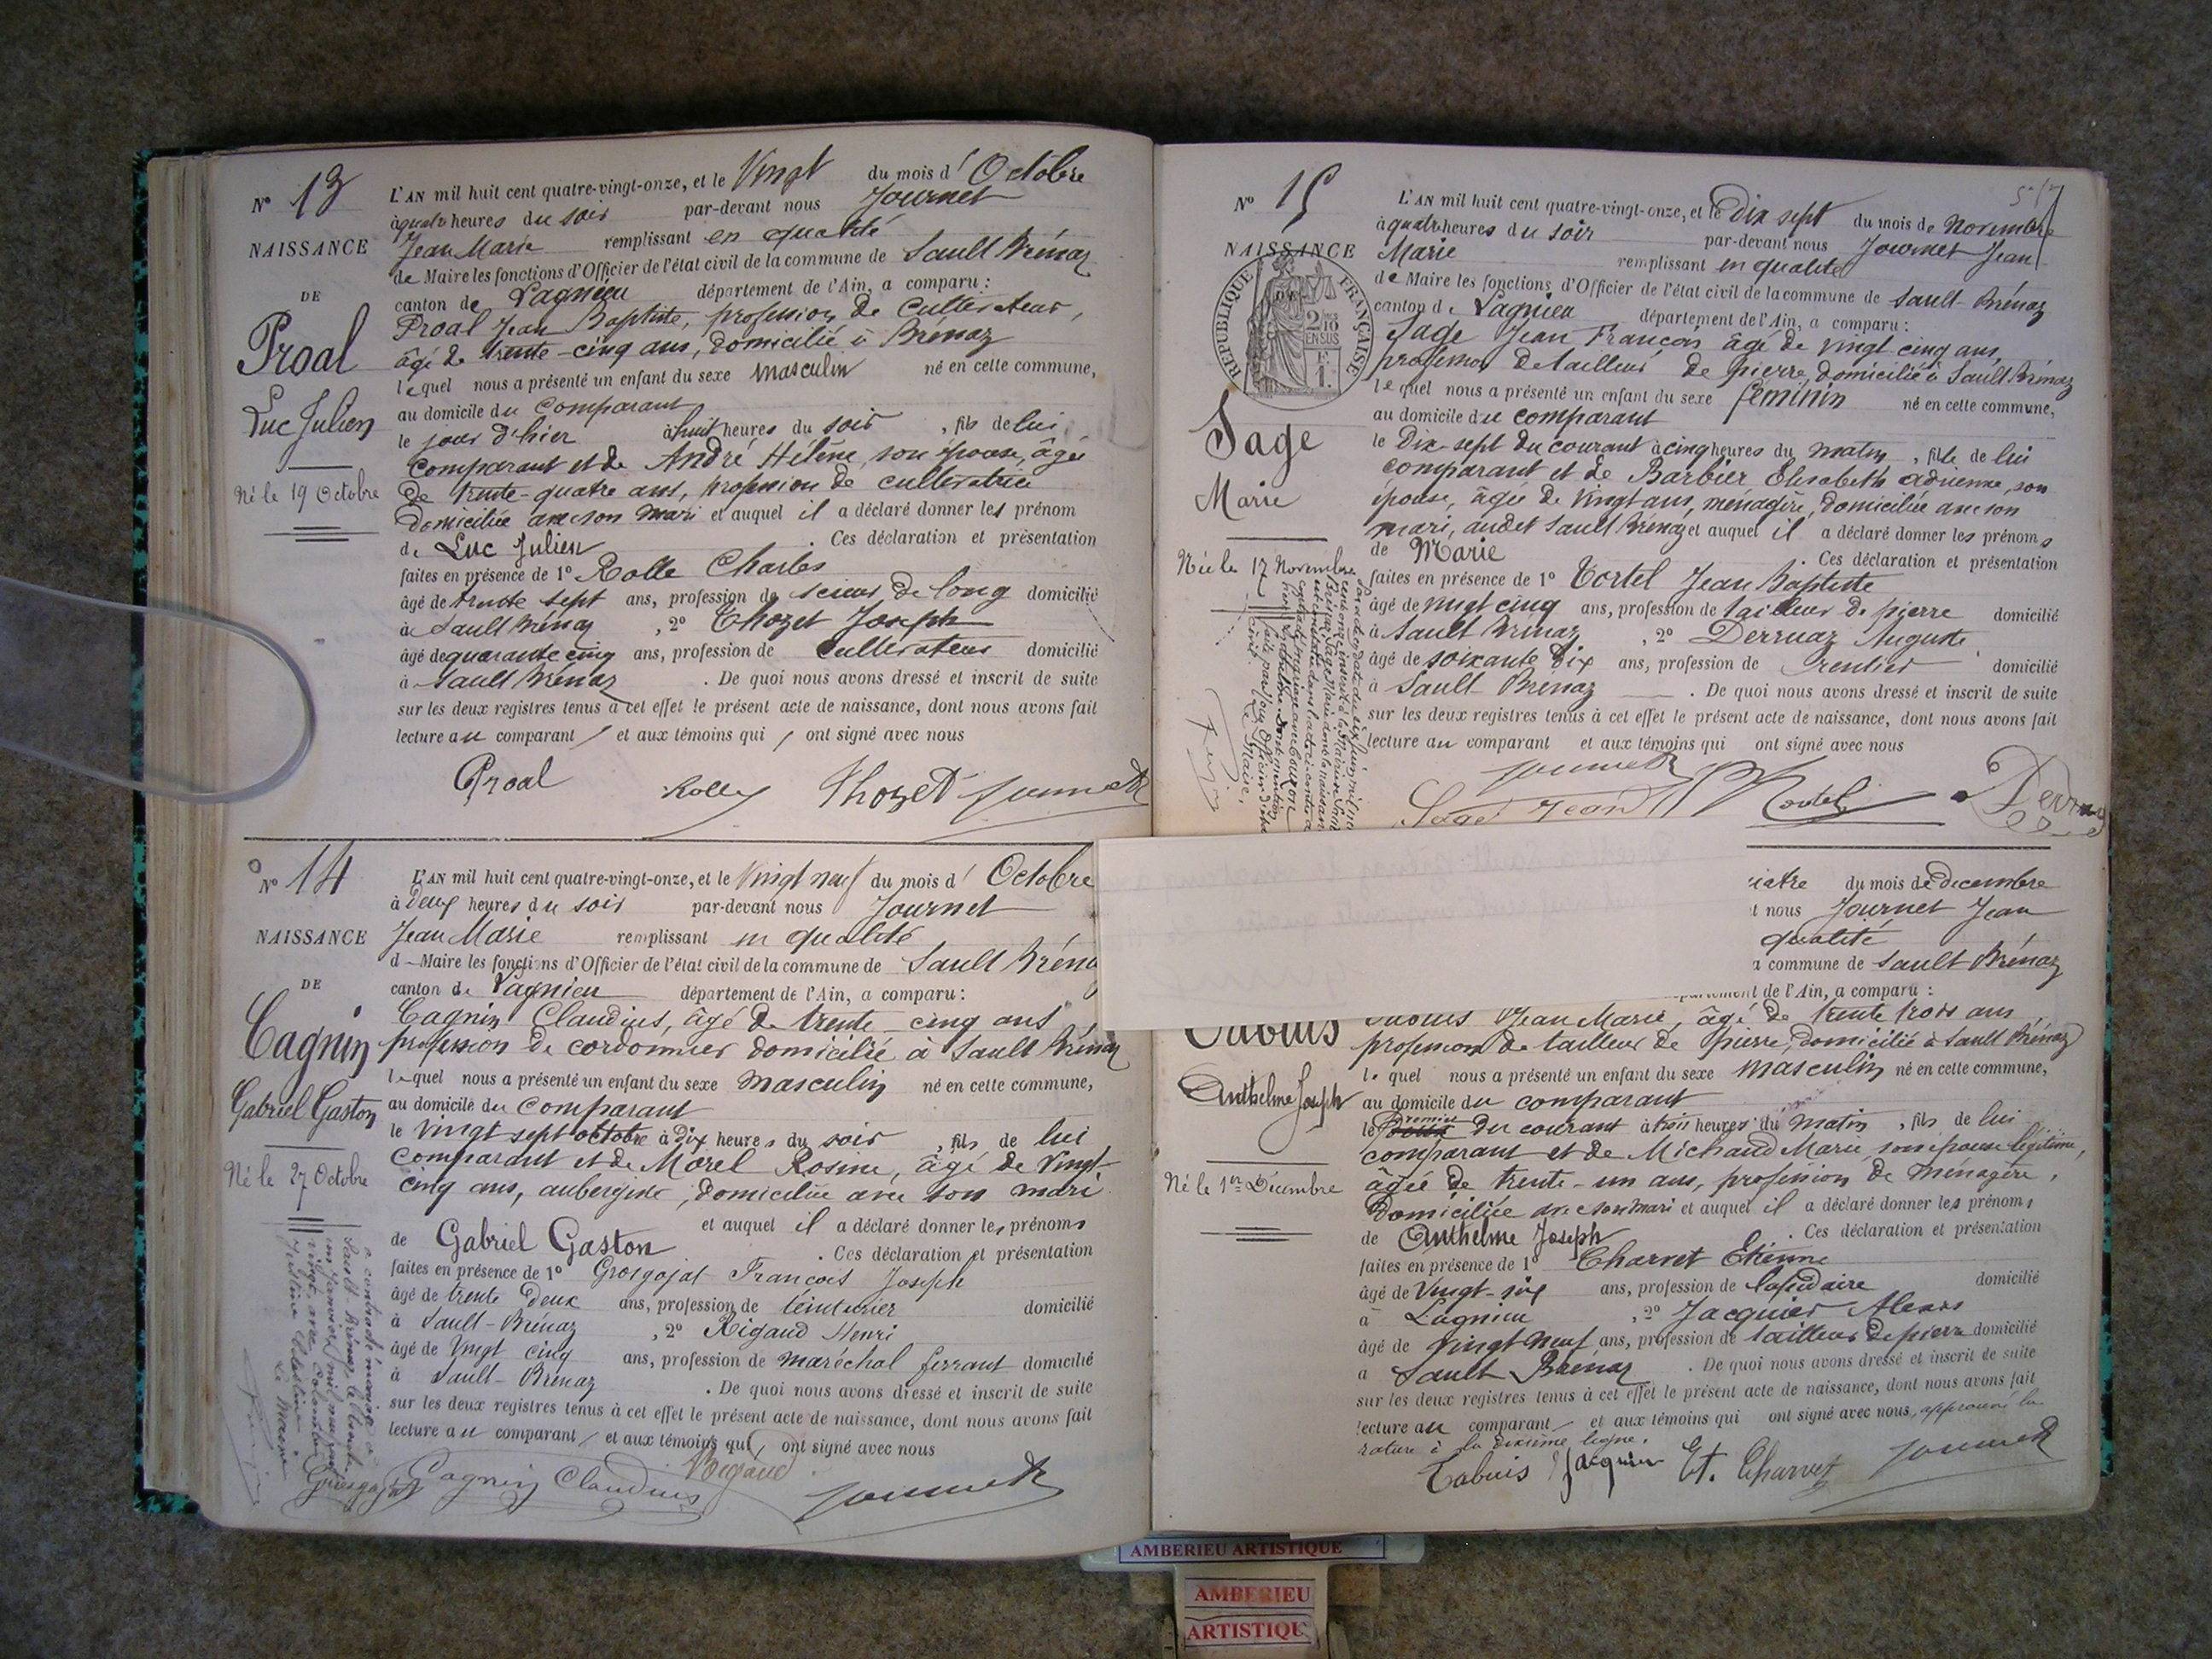 N° 13
NAISSANCE
DE
Proal
Luc Julien
Né le 19 Octobre
L'AN mil huit cent quatre-vingt-onze, et le Vingt du mois d' Octobre
à quatre heures du soir par-devant nous Journet
Jean Marie remplissant en qualité
de Maire les fonctions d'Officier de l'état civil de la commune de Sault Brénaz
canton de Lagnieu département de l'Ain, a comparu :
Proal Jean Baptiste, profession de Cultivateur,
âgé de trente-cinq ans, domicilié à Brénaz
lequel nous a présenté un enfant du sexe masculin né en cette commune,
au domicile du Comparant
le jour d'hier à huit heures du soir, fils de lui
comparant et de André Hélène, son épouse, âgée
de trente-quatre ans, profession de cultivatrice
domiciliée avec son mari et auquel il a déclaré donner les prénom
de Luc Julien. Ces déclaration et présentation
faites en présence de 1° Rolle Charles
âgé de trente sept ans, profession de scieur de long domicilié
à Sault Brénaz, 2° Thozet Joseph
âgé de quarante cinq ans, profession de Cultivateur domicilié
à Sault Brénaz. De quoi nous avons dressé et inscrit de suite
sur les deux registres tenus à cet effet le présent acte de naissance, dont nous avons fait
lecture au comparant et aux témoins qui ont signé avec nous
Proal Rolle Thozet Journet
N° 14
NAISSANCE
DE
Cagnin
Gabriel Gaston
Né le 27 Octobre
a contracté mariage à
Sault Brénaz, le
janvier mil neuf cent
vingt, avec Colomb
Justine Célestine
Le Maire
L'AN mil huit cent quatre-vingt-onze, et le Vingt neuf du mois d' Octobre
à deux heures du soir par-devant nous Journet
Jean Marie remplissant en qualité
d Maire les fonctions d'Officier de l'état civil de la commune de Sault Bréna
canton de Lagnieu département de l'Ain, a comparu :
Cagnin Claudius, âgé de trente-cinq ans
profession de cordonnier domicilié à Sault Brénaz
lequel nous a présenté un enfant du sexe masculin né en cette commune,
au domicile du Comparant
le vingt sept octobre à dix heures du soir, fils de lui
comparant et de Morel Rosine, âgé de vingt-
cinq ans, aubergiste, domiciliée avec son mari
et auquel il a déclaré donner les prénoms
de Gabriel Gaston. Ces déclaration et présentation
faites en présence de 1° Grosgojat François Joseph
âgé de trente deux ans, profession de teinturier domicilié
à Sault-Brénaz, 2° Rigaud Henri
âgé de Vingt cinq ans, profession de maréchal ferrant domicilié
à Sault-Brénaz. De quoi nous avons dressé et inscrit de suite
sur les deux registres tenus à cet effet le présent acte de naissance, dont nous avons fait
lecture au comparant et aux témoins qui ont signé avec nous
Grosgojat Cagnin Claudius Rigaud Journet
N° 15
NAISSANCE
DE
RÉPUBLIQUE FRANÇAISE
2/10 EN SUS
Sage
Marie
Née le 17 Novembre
L'AN mil huit cent quatre-vingt-onze, et le Dix sept du mois de Novembre
à quatre heures du soir par-devant nous Journet Jean
Marie remplissant en qualité
de Maire les fonctions d'Officier de l'état civil de la commune de Sault-Brénaz
canton de Lagnieu département de l'Ain, a comparu :
Sage Jean François âgé de vingt cinq ans,
profession de tailleur de pierre, domicilié à Sault Brénaz
lequel nous a présenté un enfant du sexe féminin né en cette commune,
au domicile du comparant
le Dix-sept du courant à cinq heures du matin, fille de lui
comparant et de Barbier Elisabeth Adrienne, son
épouse, âgée de vingt ans, ménagère, domiciliée avec son
mari, audit Sault Brénaz et auquel il a déclaré donner les prénoms
de Marie. Ces déclaration et présentation
faites en présence de 1° Tortel Jean Baptiste
âgé de vingt cinq ans, profession de tailleur de pierre domicilié
à Sault Brénaz, 2° Derruaz Auguste
âgé de soixante dix ans, profession de rentier domicilié
à Sault-Brénaz. De quoi nous avons dressé et inscrit de suite
sur les deux registres tenus à cet effet le présent acte de naissance, dont nous avons fait
lecture au comparant et aux témoins qui ont signé avec nous
Journet
Sage Jean Tortel Derruaz
Tabuis
Anthelme Joseph
Né le 1er Décembre
du mois de decembre
nous Journet Jean
qualité
commune de Sault Brénaz
de l'Ain, a comparu :
Tabuis Jean Marie, âgé de trente trois ans,
profession de tailleur de pierre, domicilié à Sault Brénaz
lequel nous a présenté un enfant du sexe masculin né en cette commune,
au domicile du comparant
le Premier du courant à trois heures du matin, fils de lui
comparant et de Michaud Marie, son épouse légitime,
âgée de trente-un ans, profession de Ménagère,
domiciliée avec son mari et auquel il a déclaré donner les prénoms
de Anthelme Joseph. Ces déclaration et présentation
faites en présence de 1° Charvet Etienne
âgé de vingt-six ans, profession de lapidaire domicilié
à Lagnieu, 2° Jacquier Alexis
âgé de vingt neuf ans, profession de tailleur de pierre domicilié
à Sault Brénaz. De quoi nous avons dressé et inscrit de suite
sur les deux registres tenus à cet effet le présent acte de naissance, dont nous avons fait
lecture au comparant et aux témoins qui ont signé avec nous, approuvé la
rature à la dixième ligne.
Tabuis Jacquier Et. Charvet Journet
AMBERIEU ARTISTIQUE
AMBERIEU
ARTISTIQU